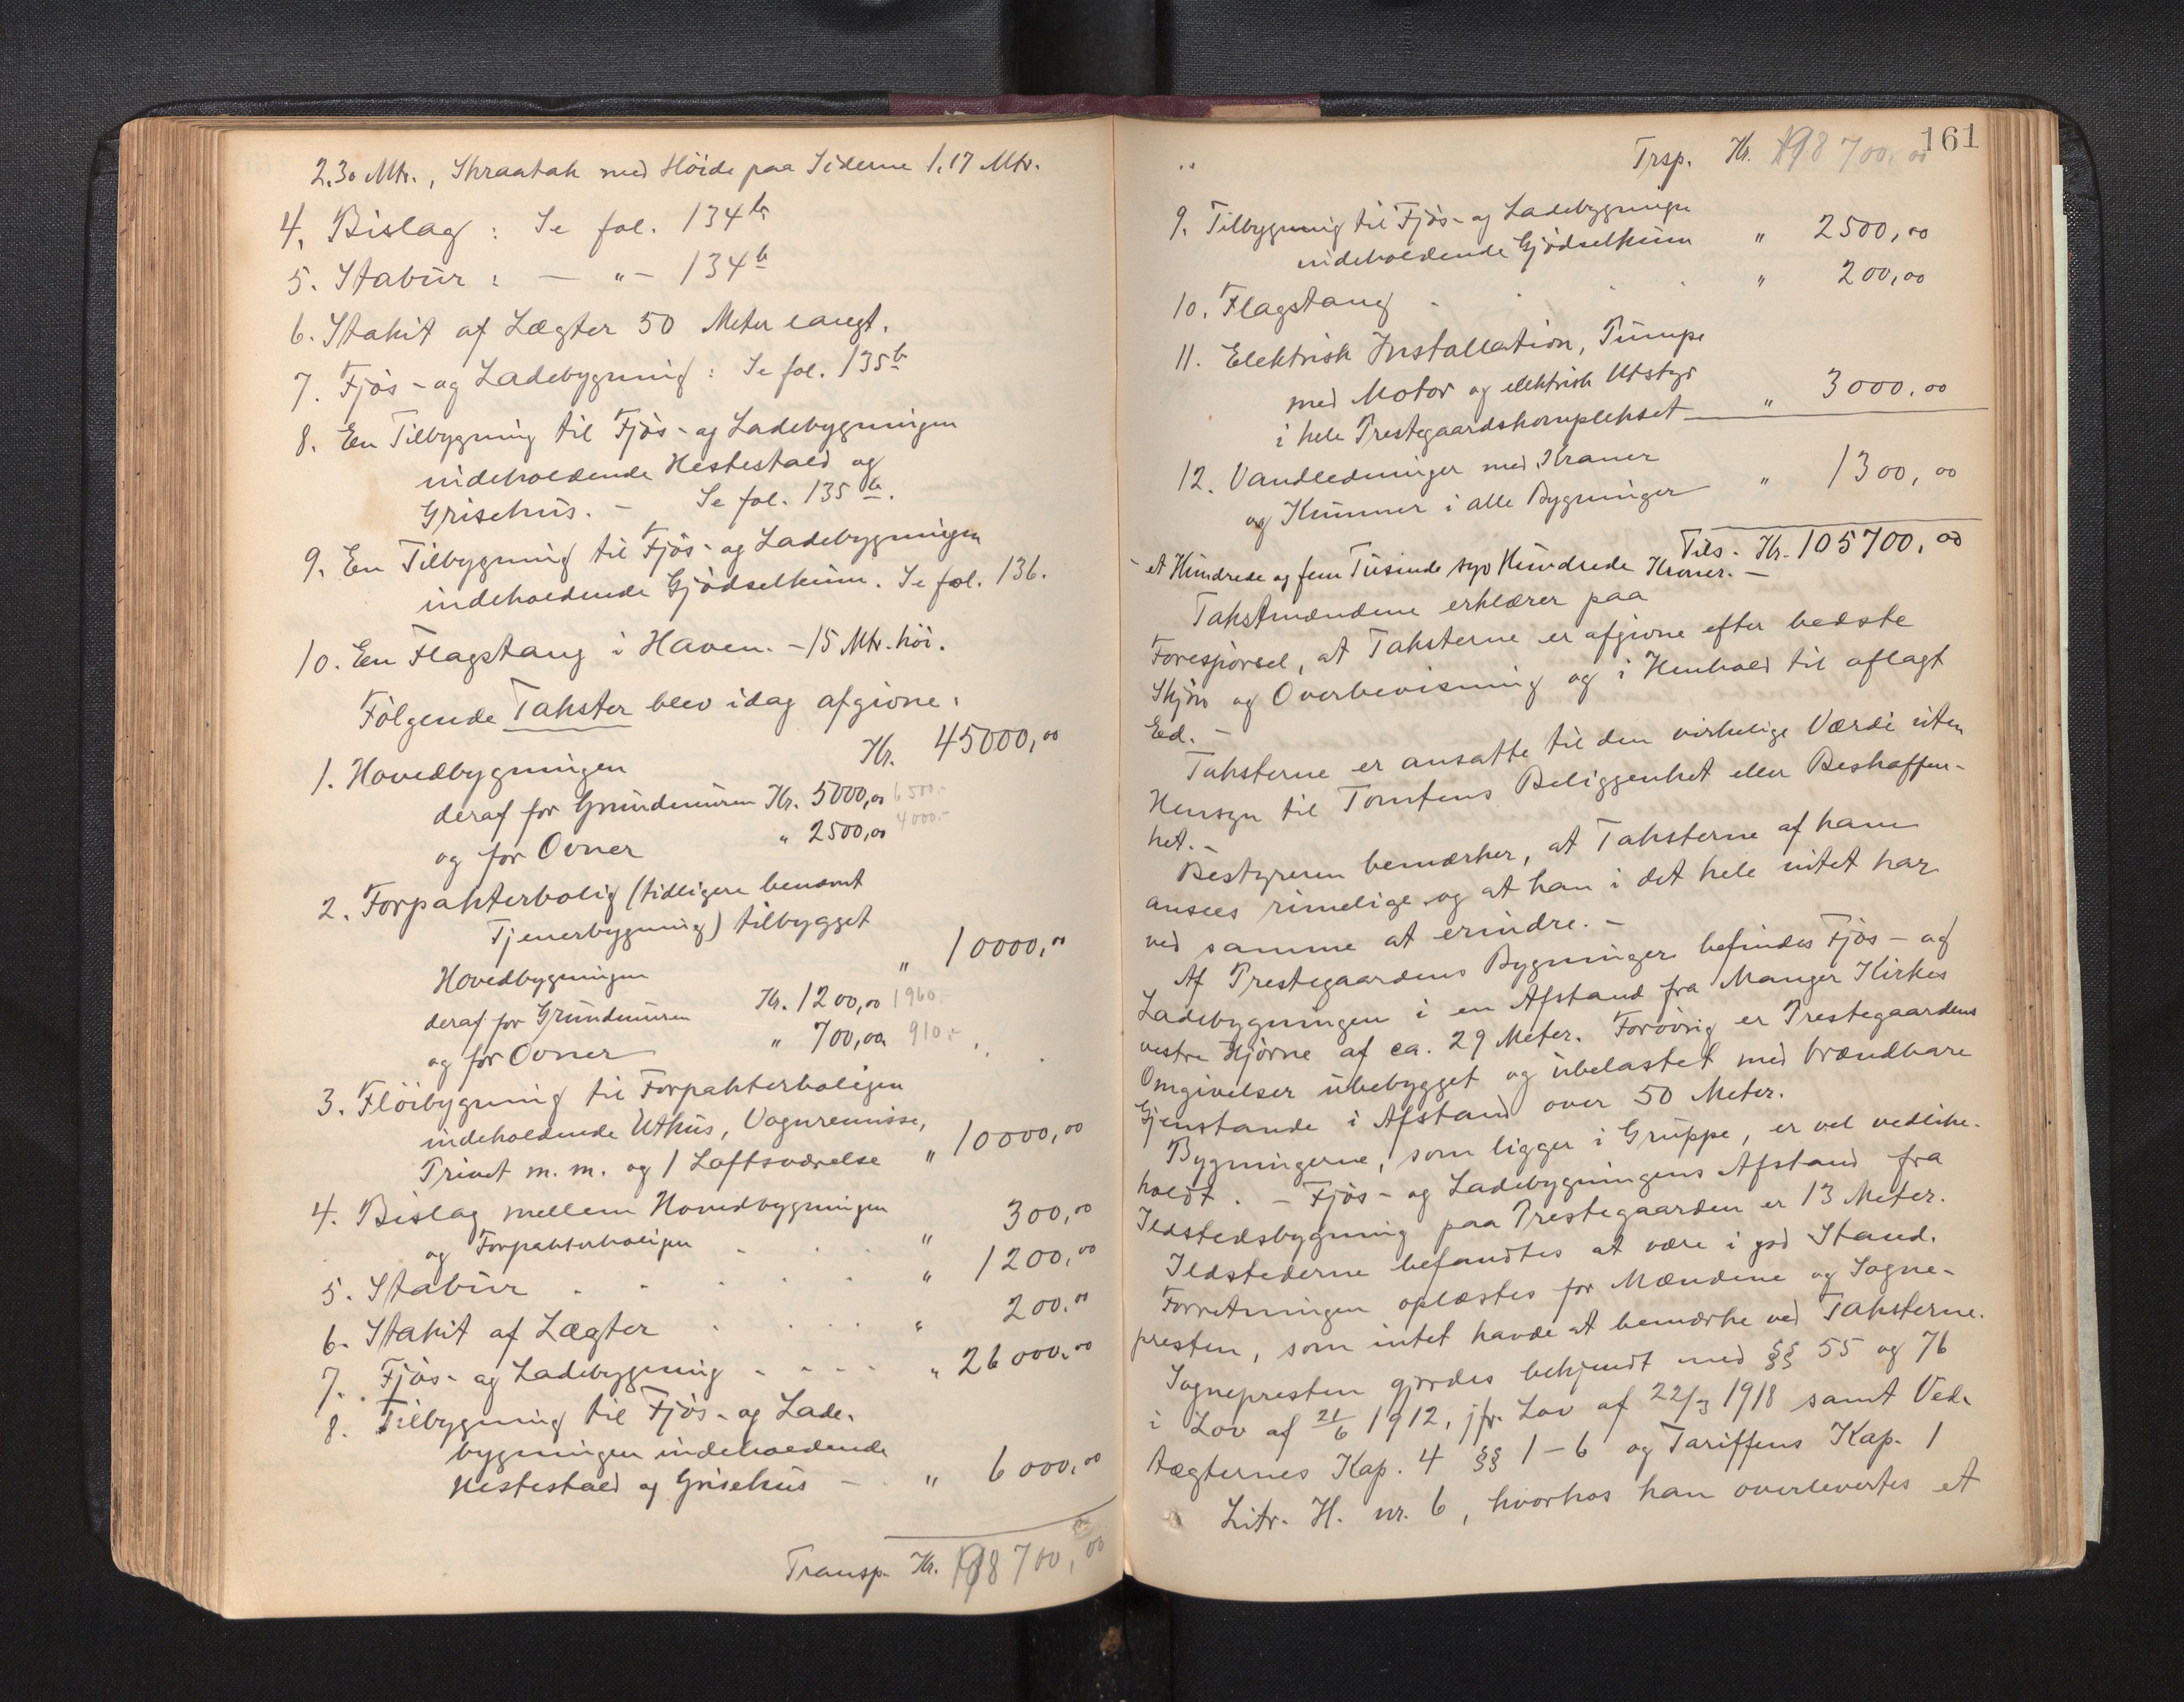 2.30 Mtr., Skraatak med Höide paa Siderne 1,17 Mtr.
4. Bislag : Se fol. 134b
5. Stabur : — „ — 134b
6. Stakit af Lægter 50 Meter langt.
7. Fjös- og Ladebygning : Se fol. 135b
8. En Tilbygning til Fjös- og Ladebygningen
indeholdende Hestestald og
Grisehus. — Se fol. 135b.
9. En Tilbygning til Fjös- og Ladebygningen
indeholdende Gjödselkum. Se fol. 136.
10. En Flagstang i Haven. – 15 Mtr. höi.
Fölgende Takster blev idag afgivne:
1. Hovedbygningen Kr. 45000,00
deraf for Grundmuren Kr. 5000,00 6500.-
og for Ovner „ 2500,00 4000.-
2. Forpakterbolig (tidligere benævnt
Tjenerbygning) tilbygget
Hovedbygningen „ 10000,00
deraf for Grundmuren Kr. 1200,00 1960.-
og for Ovner „ 700,00 910.-
3. Flöibygning til Forpakterboligen
indeholdende Uthus, Vognremisse,
Privet m. m. og 1 Loftsværelse „ 10000,00
4. Bislag mellem Hovedbygningen
og Forpakterboligen . . . „ 300,00
5. Stabur . . . . . „ 1200,00
6. Stakit af Lægter . . . . „ 200,00
7. Fjös- og Ladebygning - - - - „ 26000,00
8. Tilbygning til Fjös- og Lade-
bygningen indeholdende
Hestestald og Grisehus — „ 6000,00
Transp. Kr. 98700,00
161
Trsp. Kr. 98700,00
9. Tilbygning til Fjös- og Ladebygningen
indeholdende Gjödselkum „ 2500,00
10. Flagstang . . . . „ 200,00
11. Elektrisk Installation, Pumpe
med Motor og elektrisk Utstyr
i hele Prestegaardskomplekset „ 3000,00
12. Vandledninger med Kraner
og Kummer i alle Bygninger „ 1300,00
Tils. Kr. 105700,00
- et Hundrede og fem Tusinde syv Hundrede Kroner. —
Takstmændene erklærer paa
Forespörsel, at Taksterne er afgivne efter bedste
Skjön og Overbevisning og i Henhold til aflagt
Ed. —
Taksterne er ansatte til den virkelige Værdi uten
Hensyn til Tomtens Beliggenhet eller Beskaffen-
het. —
Bestyreren bemærker, at Taksterne af ham
ansees rimelige og at han i det hele intet har
ved samme at erindre. —
Af Prestegaardens Bygninger befindes Fjös- og
Ladebygningen i en Afstand fra Manger Kirkes
vestre Hjörne af ca. 29 Meter. Forövrig er Prestegaardens
Omgivelser ubebygget og ubelastet med brændbare
Gjenstande i Afstand over 50 Meter.
Bygningerne, som ligger i Gruppe, er vel vedlike-
holdt. – Fjös- og Ladebygningens Afstand fra
Ildstedsbygning paa Prestegaarden er 13 Meter.
Ildstederne befandtes at være i god Stand.
Forretningen oplæstes for Mændene og Sogne-
presten, som intet havde at bemærke ved Taksterne.
Sognepresten gjordes bekjendt med §§ 55 og 76
i Lov af 21/6 1912, jfr. Lov af 22/3 1918 samt Ved-
tægternes Kap. 4 §§ 1–6 og Tariffens Kap. 1
Litr. H. nr. 6, hvorhos han overlevertes et